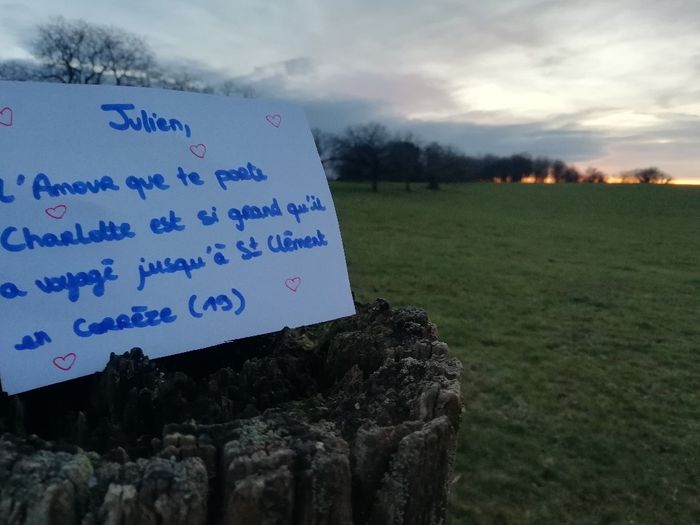 Julien,
L'Amour que te porte
Charlotte est si grand qu'il
a voyagé jusqu'à St Clément
en Corrèze (19)